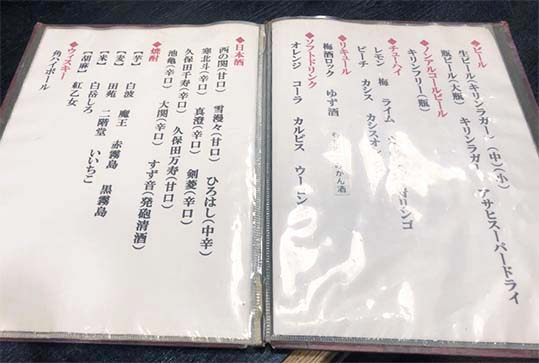 ◆ビール
生ビール(キリンラガー)(中)(小)
瓶ビール(大瓶) キリンラガー アサヒスーパードライ
◆ノンアルコールビール
キリンフリー(瓶)
◆チューハイ
レモン 梅 ライム リンゴ
ピーチ カシス カシスオレ
◆リキュール
梅酒ロック ゆず酒 かん酒
◆ソフトドリンク
オレンジ コーラ カルピス ウーロン
◆日本酒
西の関(甘口) 雪漫々(甘口) ひろはし(中辛)
寒北斗(辛口) 真澄(辛口) 剣菱(辛口)
久保田千寿(辛口) 久保田万寿(甘口)
池亀(辛口) 大関(辛口) すず音(発砲清酒)
◆焼酎
【芋】 白波 魔王 赤霧島 黒霧島
【麦】 田苑 二階堂 いいちこ
【米】 白岳しろ
【胡麻】 紅乙女
◆ウィスキー
角ハイボール